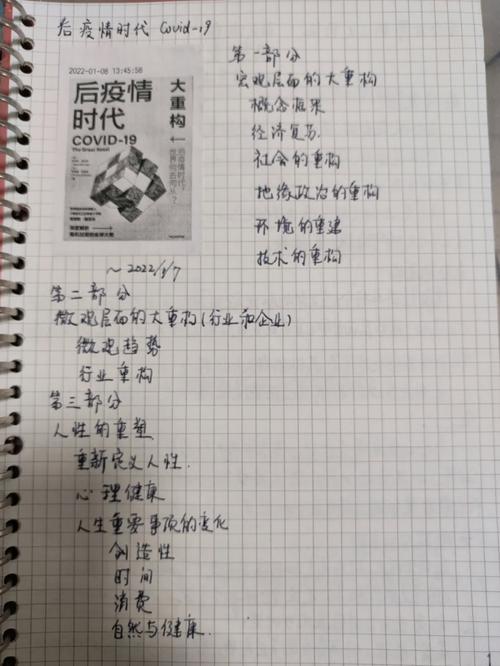 后疫情时代 Covid-19
2022-01-08 13:45:58
后疫情
时代
COVID-19
The Great Reset
大重构
后疫情时代，
世界何去何从？
~2022/1/7
第一部分
宏观层面的大重构
概念框架
经济复苏
社会的重构
地缘政治的重构
环境的重建
技术的重构
第二部分
微观层面的大重构(行业和企业)
微观趋势
行业重构
第三部分
人性的重塑
重新定义人性.
心理健康
人生重要事项的变化
创造性
时间
消费
自然与健康.
1